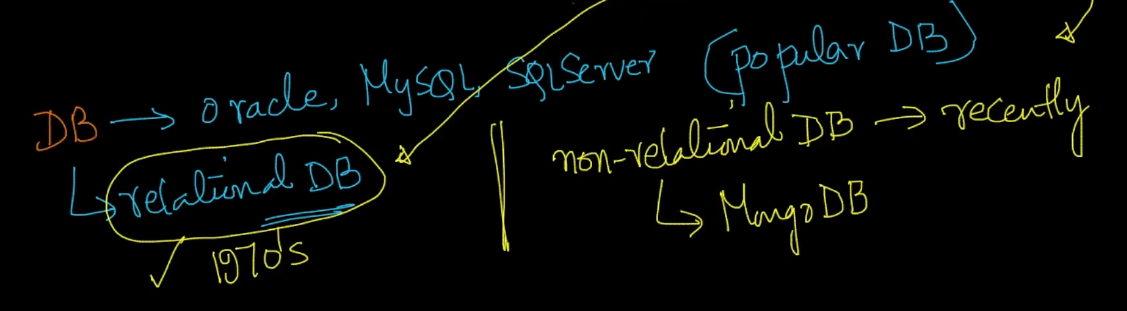 DB → oracle, MySQL, SQL Server (popular DB)
↳ relational DB
✓ 1970's
non-relational DB → recently
↳ MongoDB